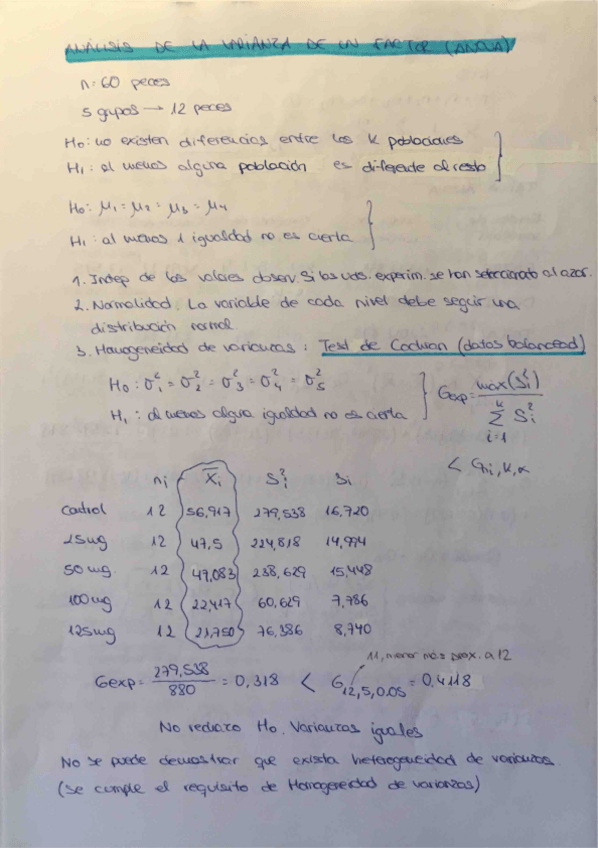 ANÁLISIS DE LA VARIANZA DE UN FACTOR (ANOVA)
n = 60 peces
5 grupos → 12 peces
H₀: no existen diferencias entre las k poblaciones
H₁: al menos alguna población es diferente al resto
H₀: μ₁ = μ₂ = μ₃ = μ₄
H₁: al menos 1 igualdad no es cierta
1. Indep de los valores observ. Si las uds. experim. se han seleccionado al azar.
2. Normalidad. La variable de cada nivel debe seguir una
distribución normal
3. Homogeneidad de varianzas: Test de Cochran (datos balanced)
H₀: σ₁² = σ₂² = σ₃² = σ₄² = σ₅²
H₁: al menos alguna igualdad no es cierta
Gexp = max(Sᵢ²) / Σ Sᵢ² k i=1
< Gnᵢ, k, α
nᵢ X̄ᵢ Sᵢ² Sᵢ
Control 12 56,917 279,538 16,720
25ug 12 47,5 224,818 14,994
50 ug 12 47,083 238,629 15,448
100ug 12 22,417 60,629 7,786
125ug 12 21,750 76,386 8,740
11, menor más prox. a 12
Gexp = 279,538 / 880 = 0,318 < G12,5,0.05 = 0,4118
No rechazo H₀. Varianzas iguales
No se puede demostrar que exista heterogeneidad de varianzas.
(se cumple el requisito de Homogeneidad de varianzas)